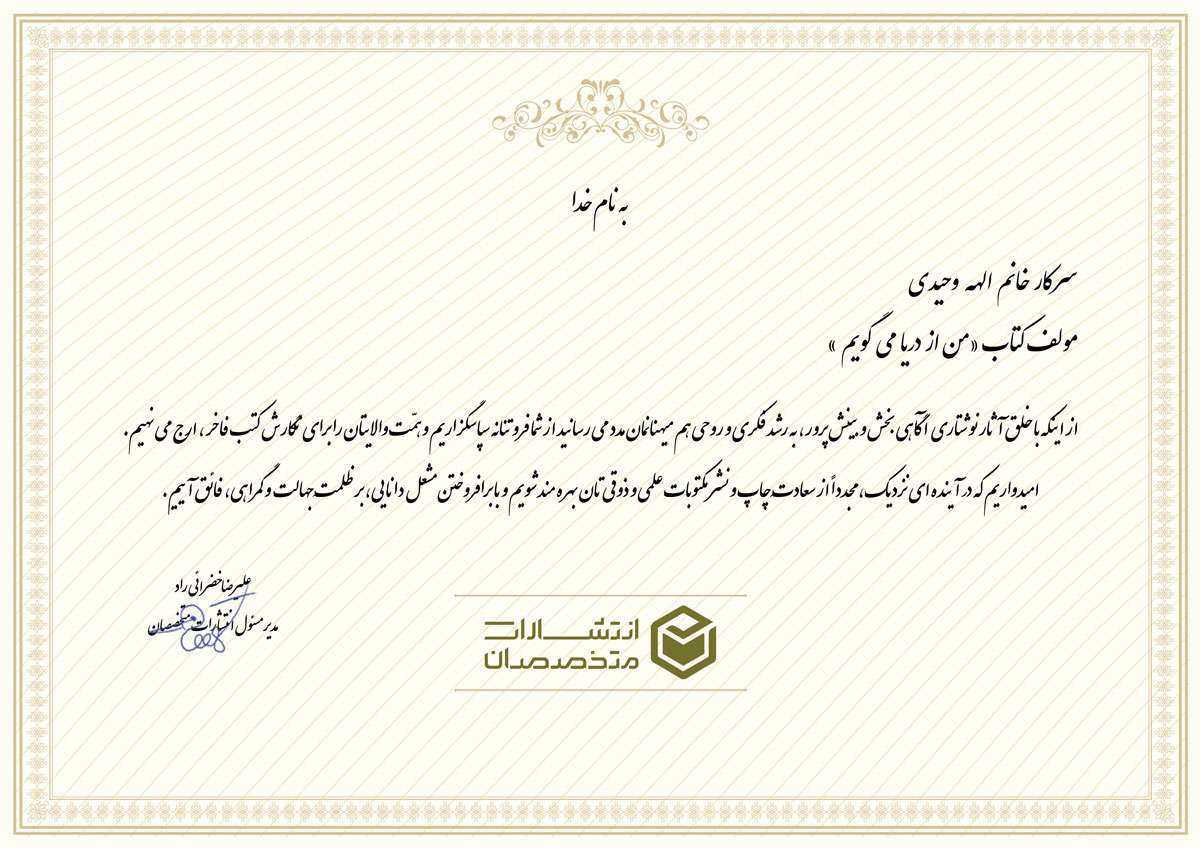 به نام خدا
سرکار خانم الهه وحیدی
مولف کتاب «من از دریا می گویم »
از اینکه با خلق آثار نوشتاری آگاهی بخش و بینش پرور، به رشد فکری و روحی هم میهنانمان مدد می رسانید از شما فروتنانه سپاسگزاریم و همّت والایتان را برای نگارش کتب فاخر ، ارج می نهیم.
امیدواریم که در آینده ای نزدیک، مجدداً از سعادت چاپ و نشر مکتوبات علمی و ذوقی تان بهره مند شویم و با برافروختن مشعل دانایی، بر ظلمت جهالت و گمراهی، فائق آییم .
علیرضا خضرائی راد
مدیر مسئول انتشارات متخصصان
انتشارات
متخصصان